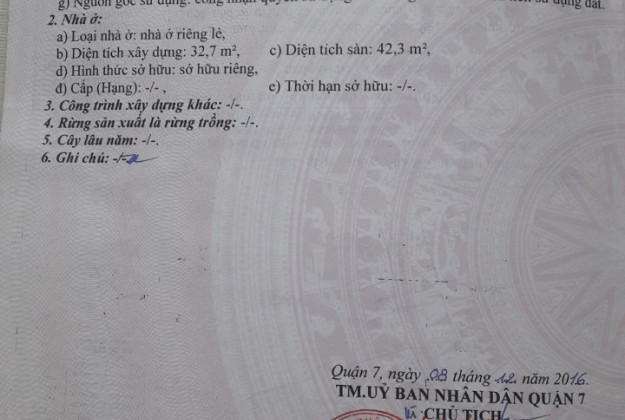 g) Nguồn gốc sử dụng: công nhận quyền sử dụng đất.
2. Nhà ở:
a) Loại nhà ở: nhà ở riêng lẻ,
b) Diện tích xây dựng: 32,7 m², c) Diện tích sàn: 42,3 m²,
d) Hình thức sở hữu: sở hữu riêng,
đ) Cấp (Hạng): -/- , e) Thời hạn sở hữu: -/-.
3. Công trình xây dựng khác: -/-.
4. Rừng sản xuất là rừng trồng: -/-.
5. Cây lâu năm: -/-.
6. Ghi chú: -/-
Quận 7, ngày 08 tháng 12 năm 2016.
TM.UỶ BAN NHÂN DÂN QUẬN 7
CHỦ TỊCH